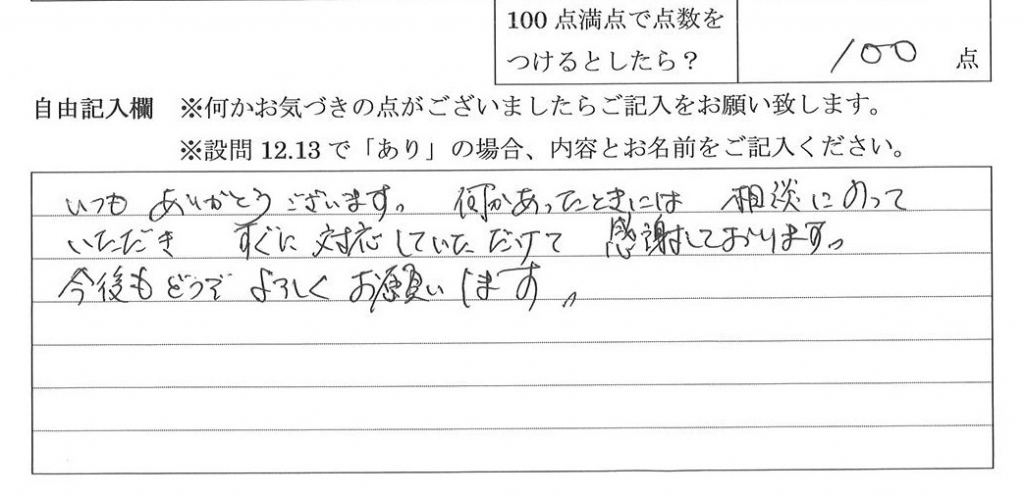 100点満点で点数を
つけるとしたら？
100 点
自由記入欄 ※何かお気づきの点がございましたらご記入をお願い致します。
※設問12.13で「あり」の場合、内容とお名前をご記入ください。
いつも ありがとうございます。 何かあったときには 相談にのって
いただき すぐに 対応していただけて 感謝しております。
今後もどうぞ よろしく お願いします。